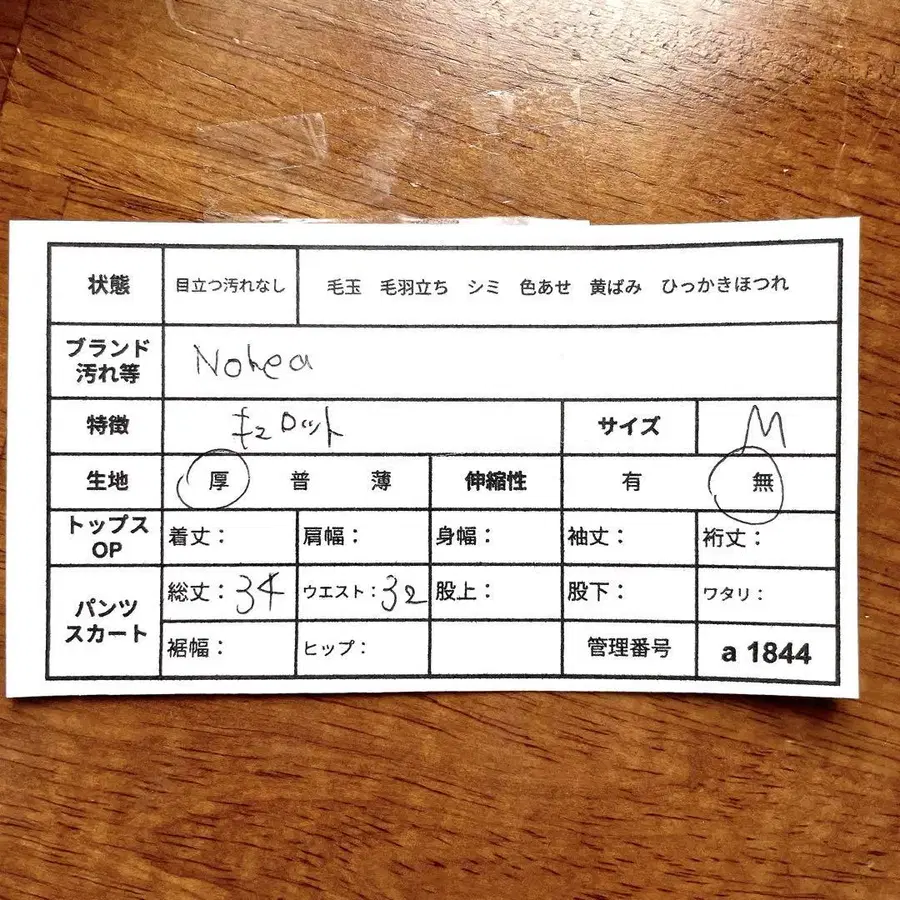 状態 目立つ汚れなし 毛玉 毛羽立ち シミ 色あせ 黄ばみ ひっかきほつれ
ブランド
汚れ等 Nohea
特徴 キュロット サイズ M
生地 厚 普 薄 伸縮性 有 無
トップス
OP 着丈： 肩幅： 身幅： 袖丈： 裄丈：
パンツ
スカート 総丈：34 ウエスト：32 股上： 股下： ワタリ：
裾幅： ヒップ： 管理番号 a 1844